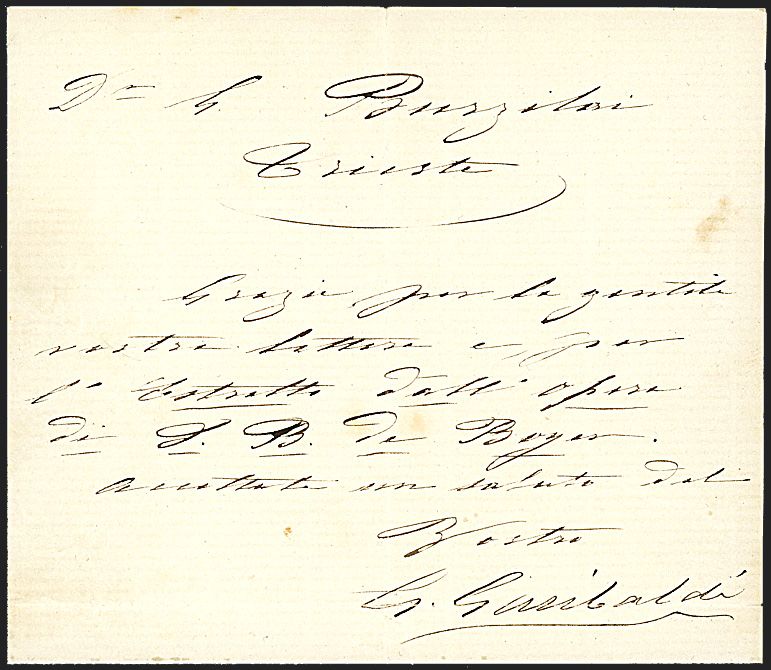 Dr G. Barzilai
Trieste
Grazie per la gentile
vostra lettera e, per
l'Estratto dall'opera
di S. B. de Boyer.
Accettate un saluto del
Vostro
G. Garibaldi